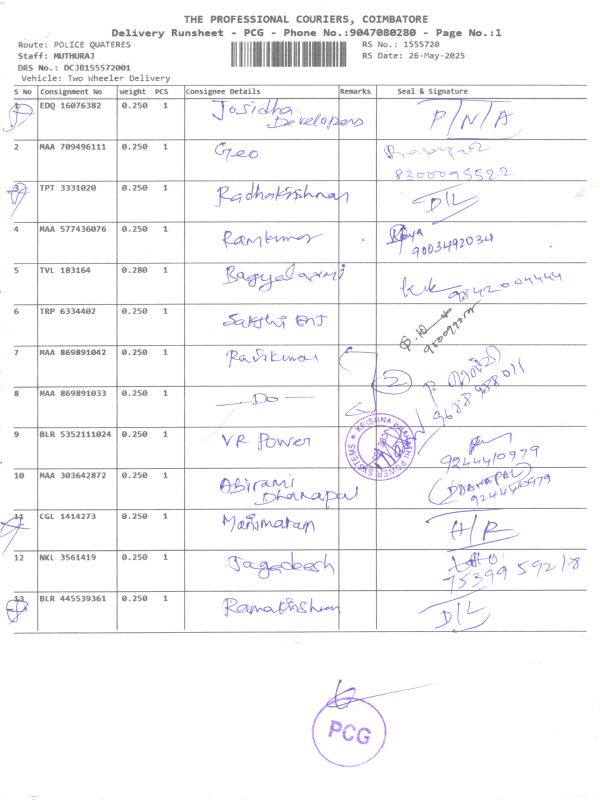 THE PROFESSIONAL COURIERS, COIMBATORE
Delivery Runsheet - PCG - Phone No.:9047080280 - Page No.:1
Route: POLICE QUATERES
RS No.: 1555720
Staff: MUTHURAJ
RS Date: 26-May-2025
DRS No.: DCJB155572001
Vehicle: Two Wheeler Delivery
S No Consignment No Weight PCS Consignee Details Remarks Seal & Signature
1 EDQ 16076382 0.250 1 Josidha Developers P/N/A
2 MAA 709496111 0.250 1 Geo
8300095522
3 TPT 3331020 0.250 1 Radhakrishnan D/L
4 MAA 577436076 0.250 1 Ramkumar
9003492034
5 TVL 183164 0.280 1 Bagyalaxmi 9842004444
6 TRP 6334402 0.250 1 Sakthi
7 MAA 869891042 0.250 1 Ravikumar 2
8 MAA 869891033 0.250 1 Do 9688988011
9 BLR 5352111024 0.250 1 VR Power
9244410979
KRISHNA POWER SYSTEMS
10 MAA 303642872 0.250 1 Abirami Dhanapal (DHANAPAL)
9244410979
11 CGL 1414273 0.250 1 Manimaran H/R
12 NKL 3561419 0.250 1 Jagadeesh
75399 59218
13 BLR 445539361 0.250 1 Ramakrishnan D/L
PCG